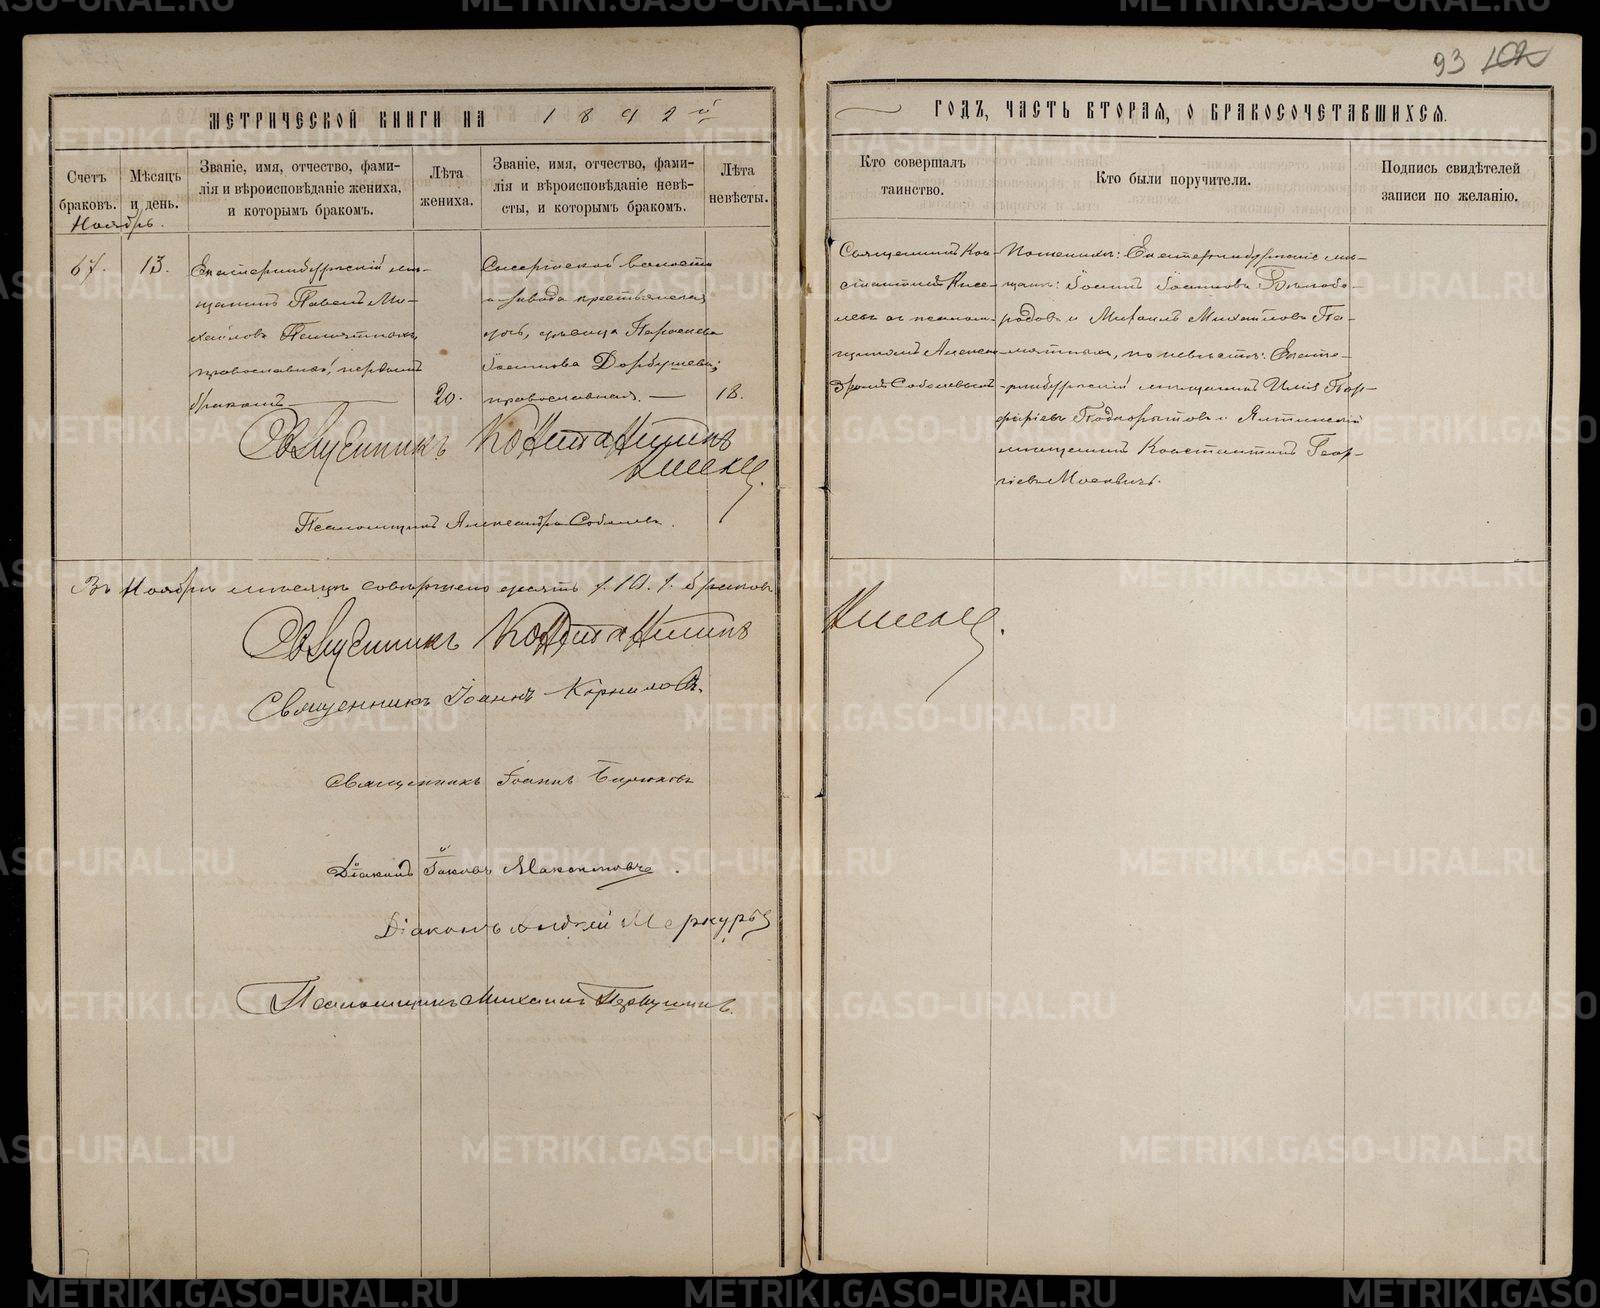 93 102
МЕТРИЧЕСКОЙ КНИГИ НА 1892й
ГОДЪ, ЧАСТЬ ВТОРАЯ, О БРАКОСОЧЕТАВШИХСЯ.
Счетъ браковъ.
Мѣсяцъ и день.
Званіе, имя, отчество, фами-
лія и вѣроисповѣданіе жениха,
и которымъ бракомъ.
Лѣта
жениха.
Званіе, имя, отчество, фами-
лія и вѣроисповѣданіе невѣ-
сты, и которымъ бракомъ.
Лѣта
невѣсты.
Кто совершалъ
таинство.
Кто были поручители.
Подпись свидѣтелей
записи по желанію.
Ноябрь.
67.
13.
Екатеринбургскій мѣ-
щанинъ Павелъ Ми-
хаиловъ
православный, первымъ
бракомъ
20.
Сысертской волости
и завода крестьянская
дочь, дѣвица Параскева
православная.
18.
Священникъ Кон-
стантинъ Кисе-
левъ съ псалом-
щикомъ Алексан-
дромъ Соболевымъ
По женихѣ: Екатеринбургскіе мѣ-
щане: Іоаннъ Іоанновъ Бѣлобо-
родовъ и Михаилъ Михаиловъ
по невѣстѣ: Екате-
ринбургскій мѣщанинъ Илія Пор-
фиріевъ Подкорытовъ и Ялтинскій
мѣщанинъ Константинъ Геор-
гіевъ Москвичъ.
Священникъ Константинъ
Киселевъ.
Псаломщикъ Александръ Соболевъ.
Въ Ноябрѣ мѣсяцѣ совершено десять /.10./. браковъ
Священникъ Константинъ Киселевъ.
Священникъ Іоаннъ Корниловъ.
Священникъ Іоаннъ Бирюковъ
Діаконъ Іаковъ
Діаконъ Андрей Меркурьевъ
Псаломщикъ Михаилъ
METRIKI.GASO-URAL.RU